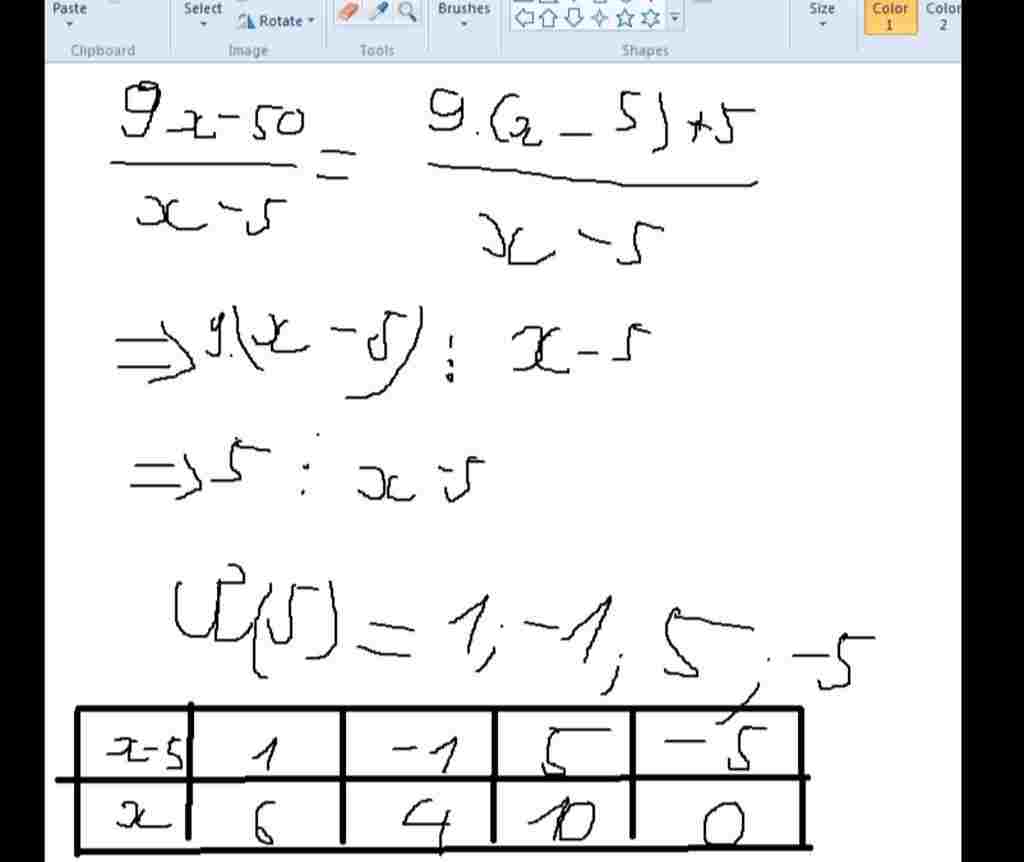 Paste Select Brushes Size Color Color
Rotate 1 2
Clipboard Image Tools Shapes
9x-50 / x-5 = 9.(x-5)+5 / x-5
⇒ 9.(x-5) ⋮ x-5
⇒ 5 ⋮ x-5
Ư(5) = 1; -1; 5; -5
x-5 1 -1 5 -5
x 6 4 10 0